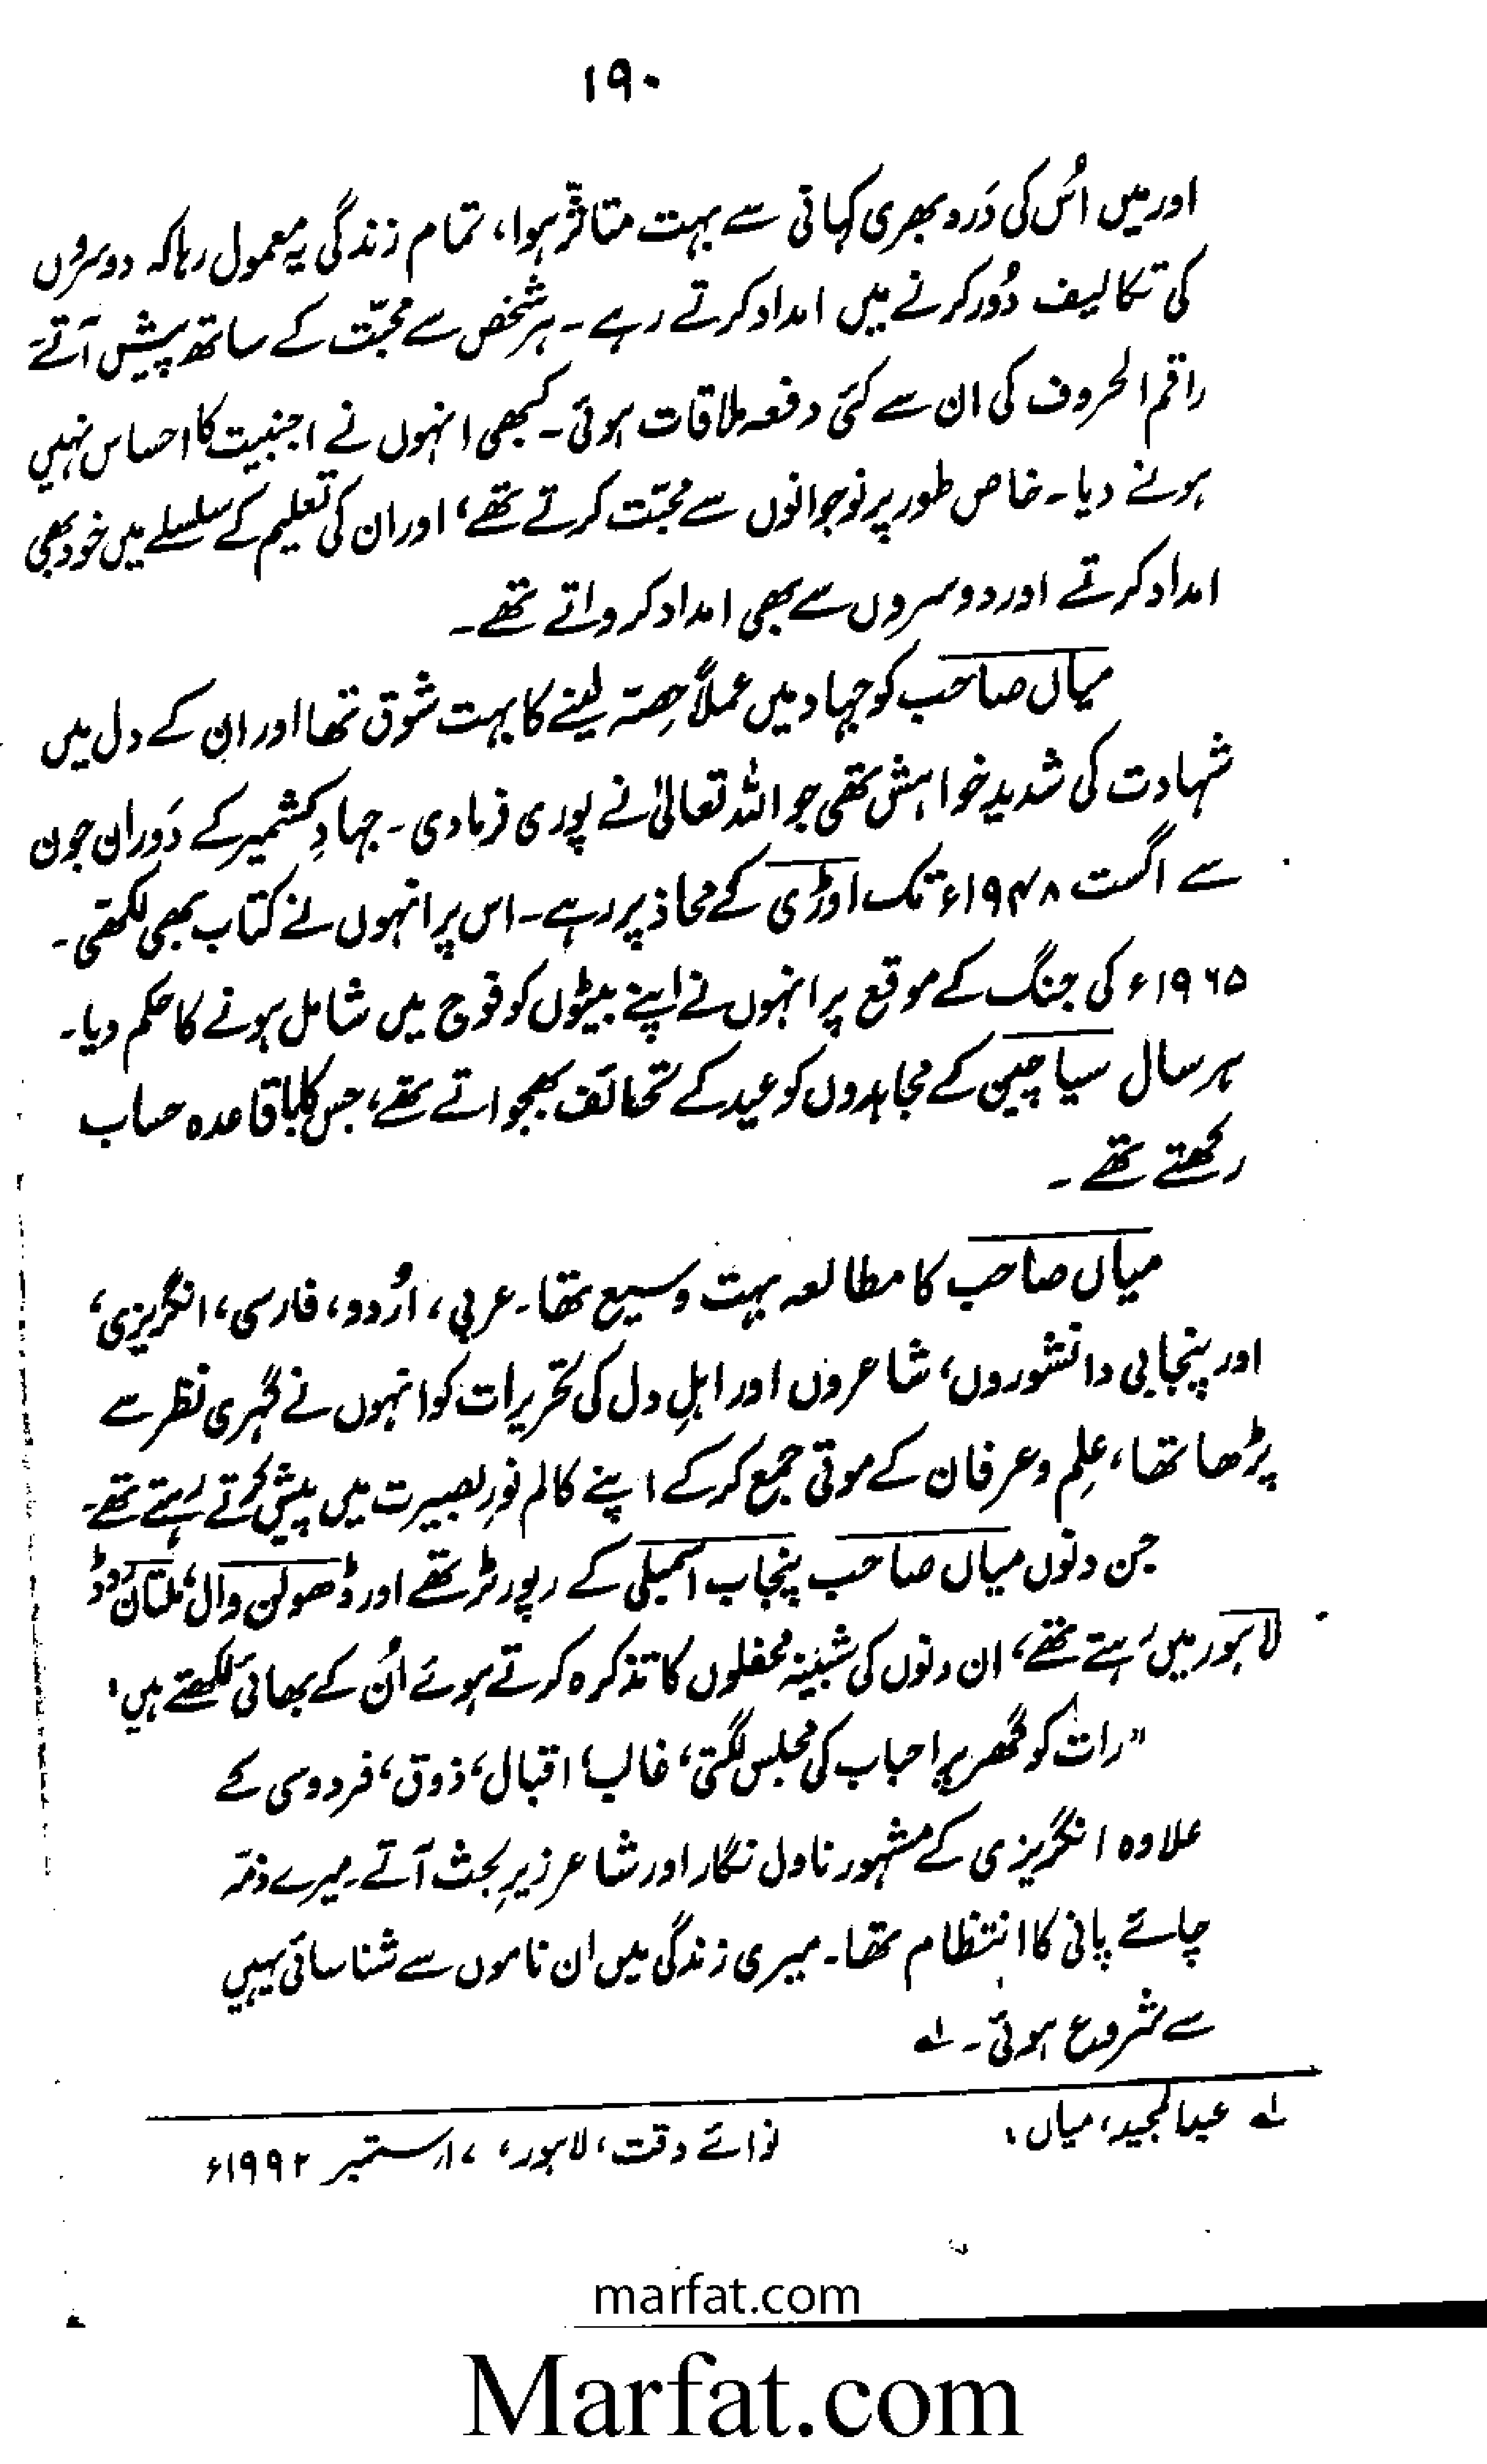 ۱۹۰
اور میں اُس کی دَرد بھری کہانی سے بہت متاثّر ہوا، تمام زندگی یہ معمول رہا کہ دوسروں
کی تکالیف دُور کرنے میں امداد کرتے رہے۔ ہر شخص سے محبّت کے ساتھ پیش آتے۔
راقم الحروف کی ان سے کئی دفعہ ملاقات ہوئی۔ کبھی انہوں نے اجنبیت کا احساس نہیں
ہونے دیا۔ خاص طور پر نوجوانوں سے محبّت کرتے تھے، اور ان کی تعلیم کے سلسلے میں خود بھی
امداد کرتے اور دوسروں سے بھی امداد کرواتے تھے۔
میاں صاحب کو جہاد میں عملاً حِصّہ لینے کا بہت شوق تھا اور ان کے دل میں
شہادت کی شدید خواہش تھی جو اللہ تعالیٰ نے پوری فرما دی۔ جہادِ کشمیر کے دَوران جون
سے اگست ۱۹۴۸ء تک اوڑی کے محاذ پر رہے۔ اس پر انہوں نے کتاب بھی لکھی۔
۱۹۶۵ء کی جنگ کے موقع پر انہوں نے اپنے بیٹوں کو فوج میں شامل ہونے کا حکم دیا۔
ہر سال سیاچین کے مجاہدوں کو عید کے تحائف بھجواتے تھے، جس کا باقاعدہ حساب
رکھتے تھے۔
میاں صاحب کا مطالعہ بہت وسیع تھا۔ عربی، اُردو، فارسی، انگریزی،
اور پنجابی دانشوروں، شاعروں اور اہلِ دل کی تحریرات کو انہوں نے گہری نظر سے
پڑھا تھا، عِلم و عرفان کے موتی جمع کر کے اپنے کالم نورِ بصیرت میں پیش کرتے رہتے تھے۔
جن دنوں میاں صاحب پنجاب اسمبلی کے رپورٹر تھے اور ڈھولن وال، ملتان روڈ
لاہور میں رہتے تھے، ان دنوں کی شبینہ محفلوں کا تذکرہ کرتے ہوئے اُن کے بھائی لکھتے ہیں،
"رات کو گھر پر احباب کی مجلس لگتی، غالب، اقبال، ذوق، فردوسی کے
علاوہ انگریزی کے مشہور ناول نگار اور شاعر زیرِ بحث آتے۔ میرے ذمّہ
چائے پانی کا انتظام تھا۔ میری زندگی میں ان ناموں سے شناسائی یہیں
سے شروع ہوئی۔ لہ
لہ عبدالمجید، میاں، نوائے وقت، لاہور، ۷ار ستمبر ۱۹۹۲ء
marfat.com
Marfat.com